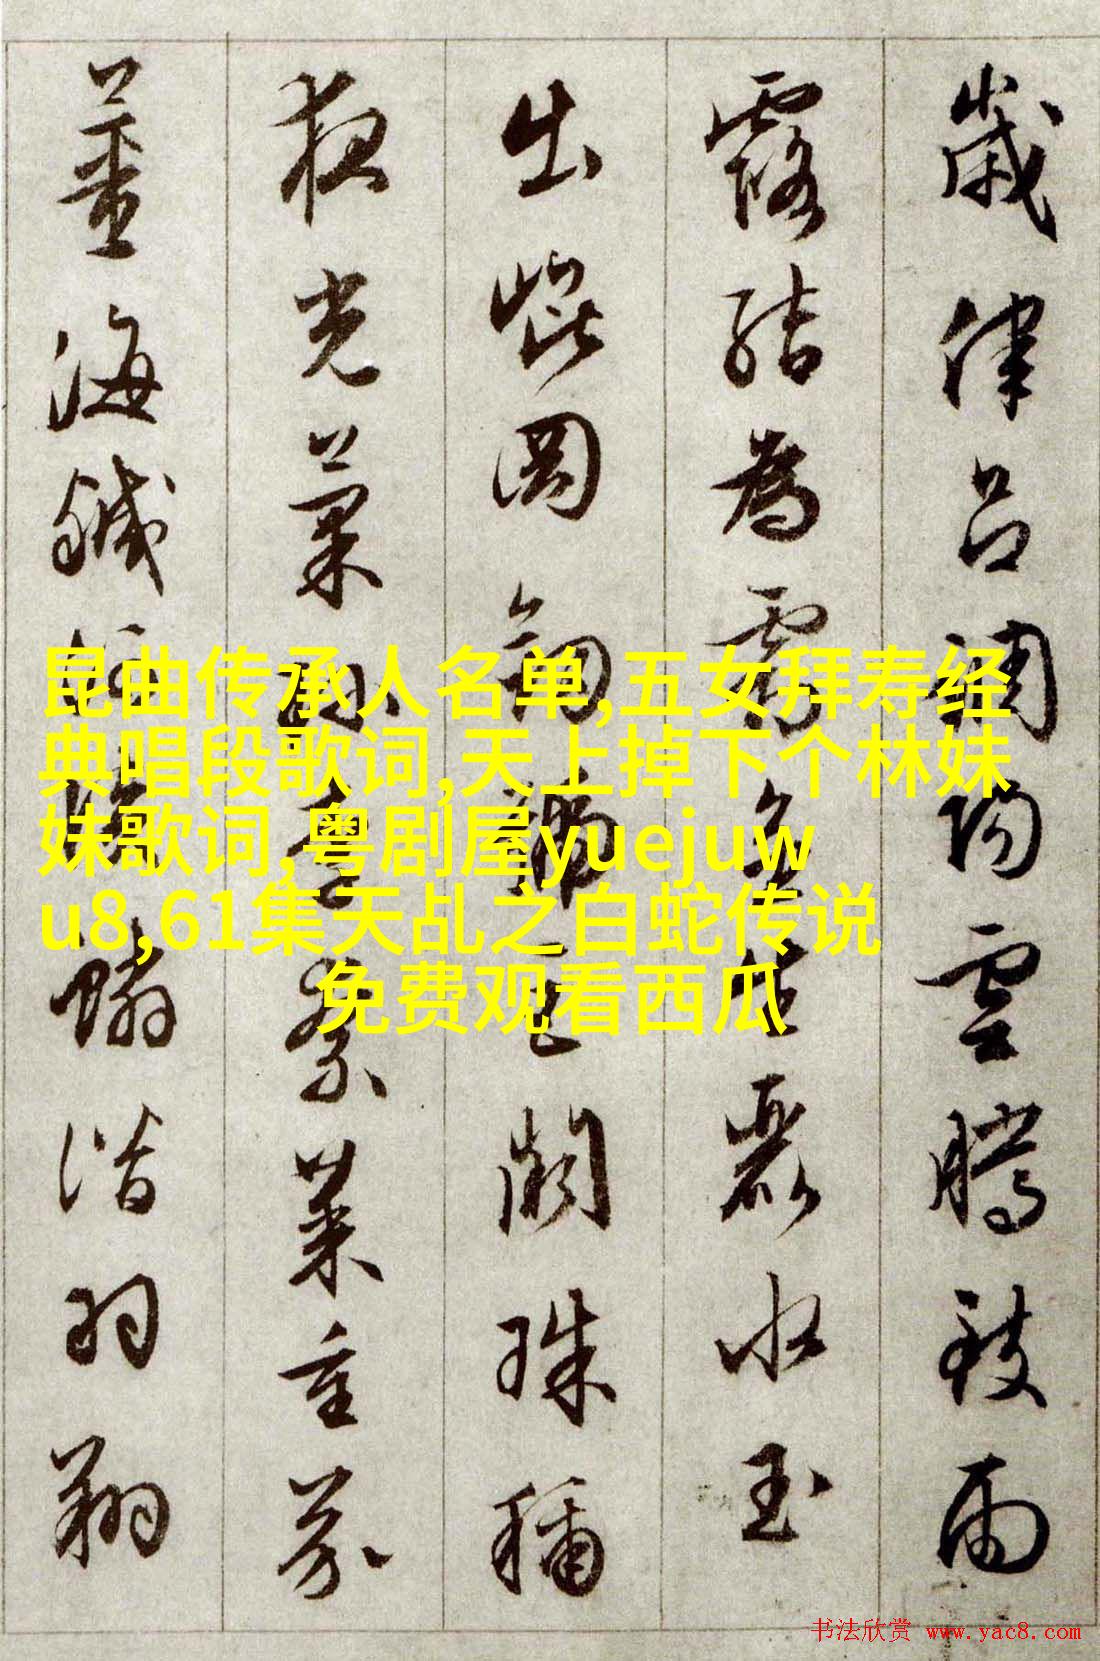 歲律呂調陽雲騰致雨
露結為霜金生麗水玉
出崐岡劍號巨闕珠稱
夜光菓珍李柰菜重芥
薑海鹹河淡鱗潛羽翔
昆曲传承人名单,五女拜寿经
典唱段歌词,天上掉下个林妹
妹歌词,粤剧屋yuejuw
u8,61集天乩之白蛇传说
免费观看西瓜
书法欣赏 www.yac8.com